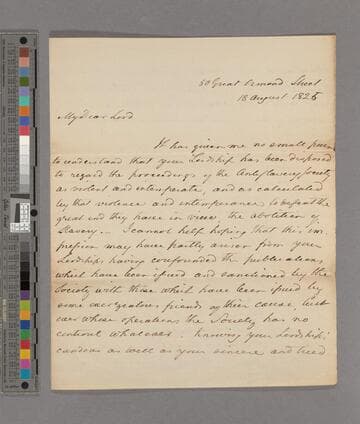 50 Great Ormond Street
18 August 1826
My dear Lord
It has given me no small pain
to understand that your Lordship has been disposed
to regard the proceedings of the Antislavery Society
as violent and intemperate, and as calculated
by that violence and intemperance to defeat the
great end they have in view, the abolition of
Slavery. I cannot help hoping that this im-
pression may have partly arisen from your
Lordship's having confounded the publications
which have been issued and sanctioned by the
Society with those which have been issued by
some overzealous friends of their cause but
over whose operations the Society has no
control whatever. Knowing your Lordship's
candour as well as your sincere and